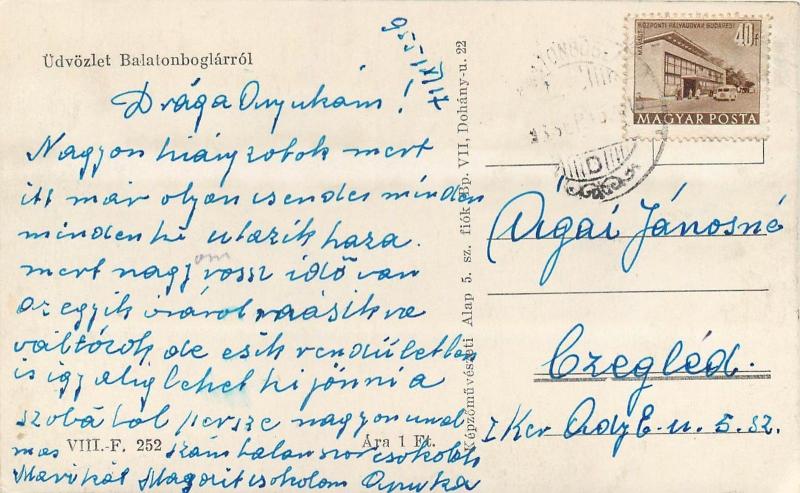 Üdvözlet Balatonboglárról
Drága Anyukám!
Nagyon hiányzotok mert
itt már olyan csendes minden
mindenki utazik haza.
mert nagyom rossz idő van
az egyik óráról másikra
változok de esik rendületlen
is igy alig lehet kijönni a
szobából persze nagyon unal
mas számtalanszor csokollak
Marikát Magorit csokolom Anyuka
VIII.-F. 252
Ára 1 Ft.
Képzőművészeti Alap 5. sz. fiók Bp. VII, Dohány-u. 22
MÁVAUT KÖZPONTI PÁLYAUDVAR BUDAPEST
40f
MAGYAR POSTA
Ágai Jánosné
Czegléd.
I Ker Ady E. u. 5. sz.